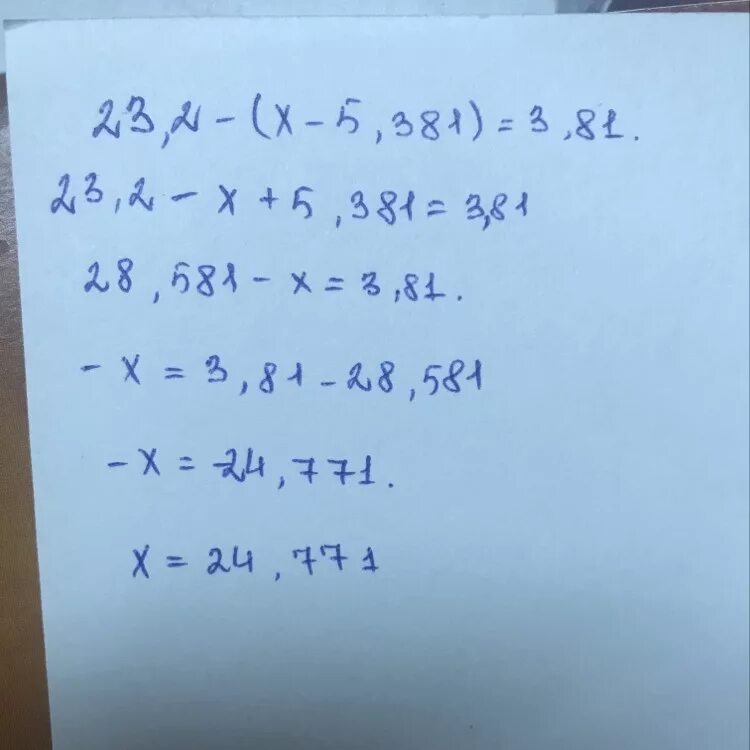 23,2 - (x - 5,381) = 3,81.
23,2 - x + 5,381 = 3,81
28,581 - x = 3,81.
- x = 3,81 - 28,581
- x = -24,771.
x = 24,771